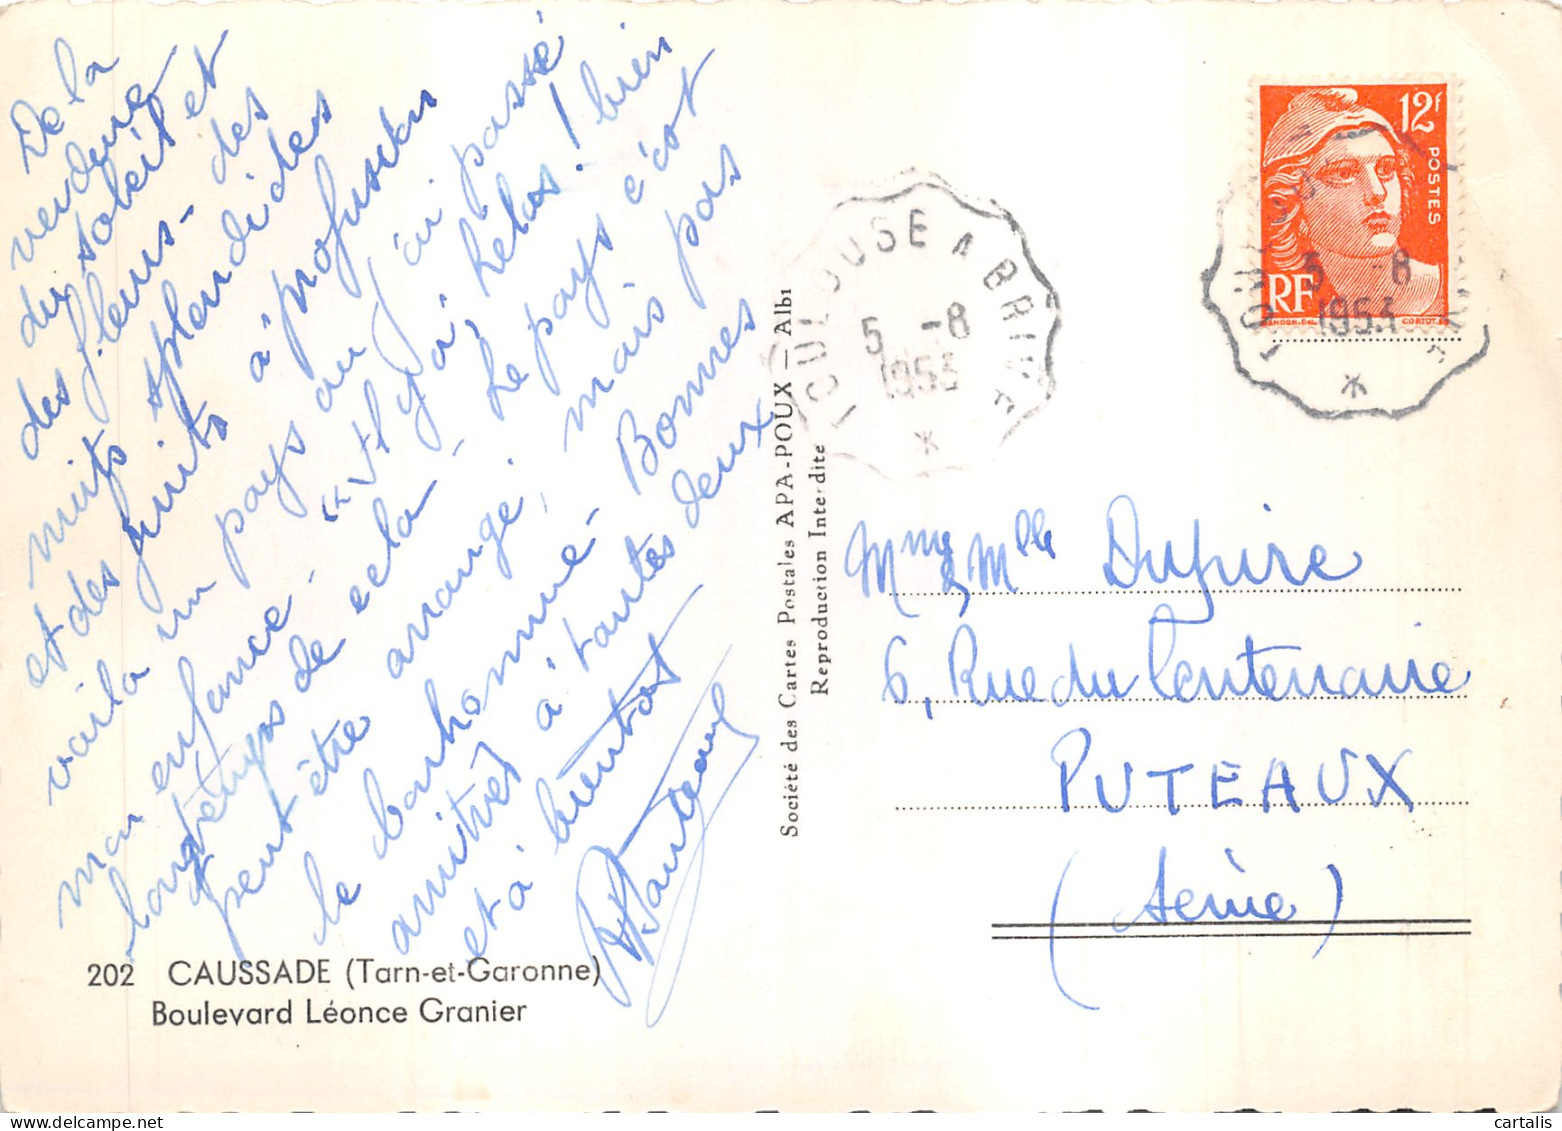 De la
verdure
du soleil et
des fleurs - des
nuits splendides
et des fruits à profusion
voilà un pays où j'ai passé
mon enfance - "Il y a, helas! bien
longtemps de cela - Le pays s'est
peut être arrangé, mais pas
le bonhomme - Bonnes
amitiés à toutes deux
et à bientot
202 CAUSSADE (Tarn-et-Garonne)
Boulevard Léonce Granier
Société des Cartes Postales APA-POUX — Albi
Reproduction Interdite
TOULOUSE A BRIVE
5 -8
1953
12f
POSTES
RF
5 -8
1953
Mme & Mlle Dupire
6, Rue du Centenaire
PUTEAUX
(Seine)
cartalis